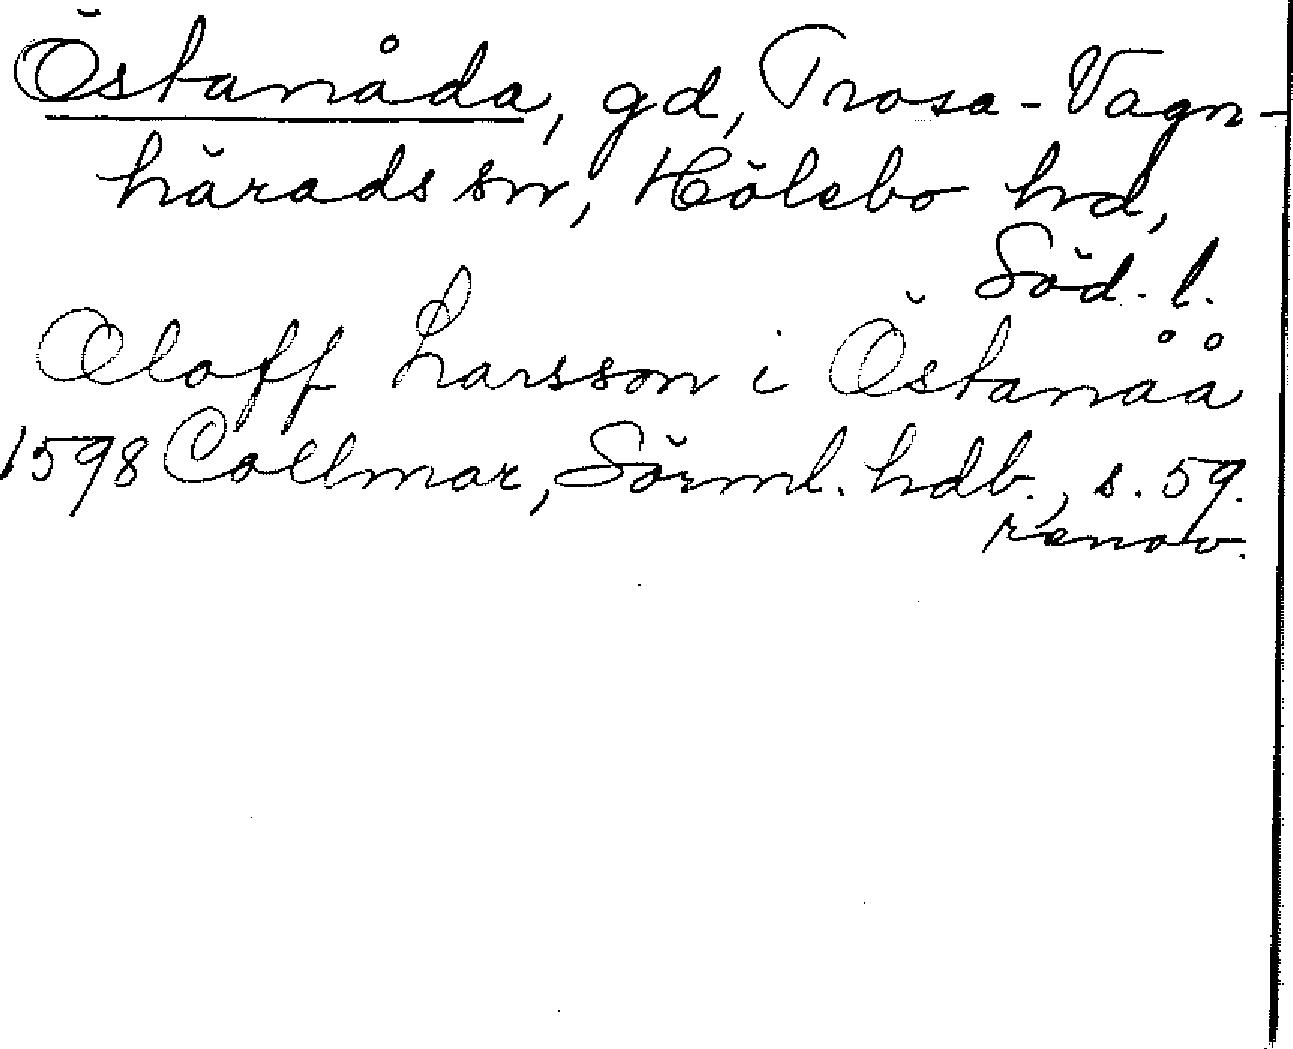 Östanåda, gd, Trosa-Vagn-
härads sn, Hölebo hd,
Söd. l.
Oloff Larsson i Östanåå
1598 Collmar, Sörml. hdb., s. 59.
renov.